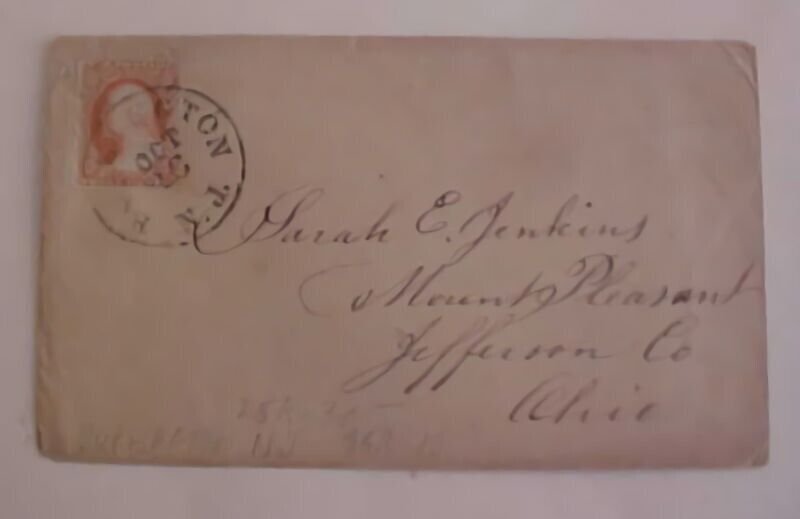 TON
OCT
Sarah E. Jenkins
Mount Pleasant
Jefferson Co
Ohio